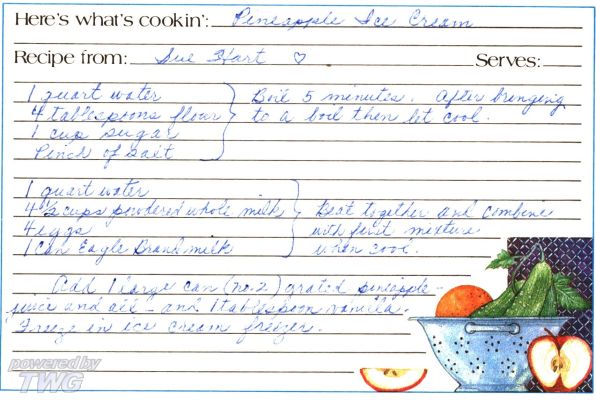 Here's what's cookin': Pineapple Ice Cream
Recipe from: Sue Hart ♡ Serves:
1 quart water
4 tablespoons flour
1 cup sugar
Pinch of salt
Boil 5 minutes. After bringing
to a boil then let cool.
1 quart water
4 ½ cups powdered whole milk
4 eggs
1 Can Eagle Brand milk
Beat together and combine
with first mixture
when cool.
Add 1 large can (no. 2) grated pineapple -
juice and all - and 1 tablespoon vanilla.
Freeze in ice cream freezer.
powered by
TWG